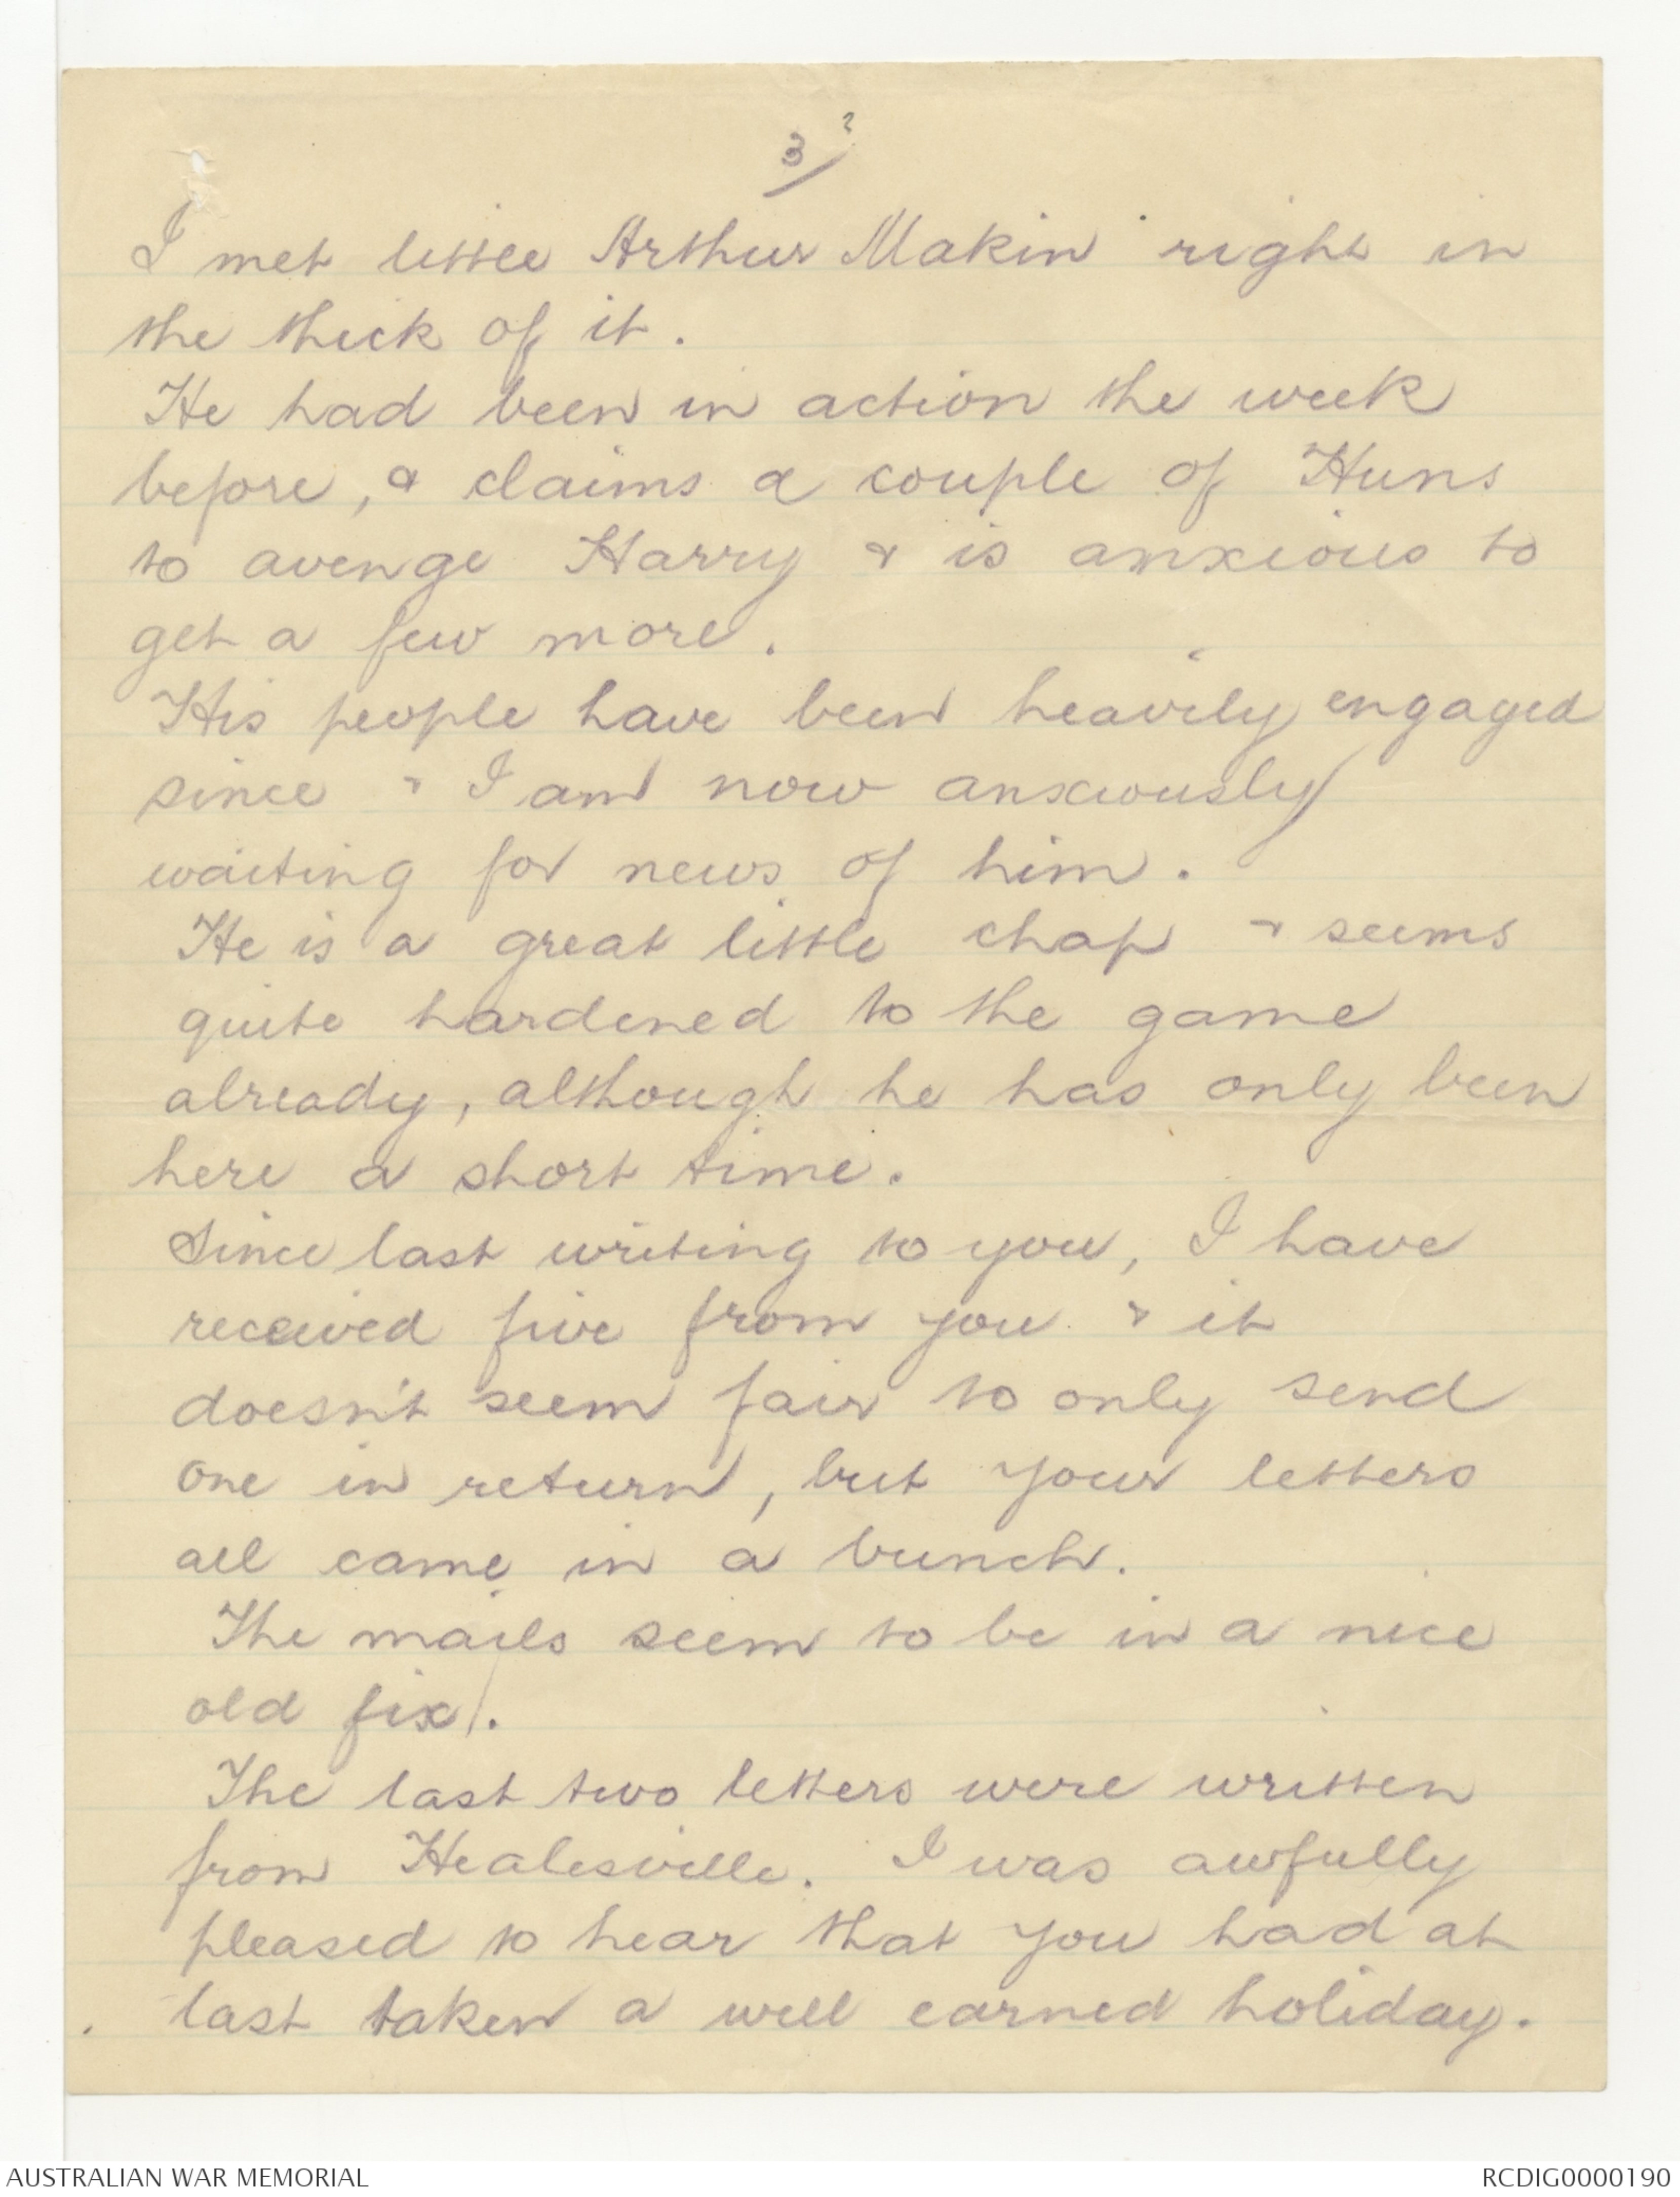 3/ ?
I met little Arthur Makin right in
the thick of it.
He had been in action the week
before, & claims a couple of Huns
to avenge Harry & is anxious to
get a few more.
His people have been heavily engaged
since & I am now anxiously
waiting for news of him.
He is a great little chap & seems
quite hardened to the game
already, although he has only been
here a short time.
Since last writing to you, I have
received five from you & it
doesn't seem fair to only send
one in return, but your letters
all came in a bunch.
The mails seem to be in a nice
old fix.
The last two letters were written
from Healesville. I was awfully
pleased to hear that you had at
last taken a well earned holiday.
AUSTRALIAN WAR MEMORIAL
RCDIG0000190